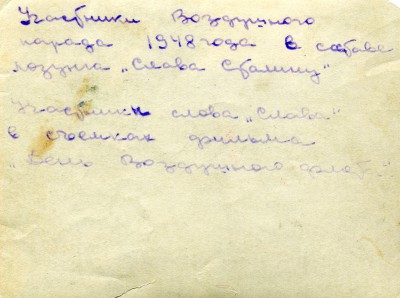 Участники Воздушного
парада 1948 года в составе
лозунга „Слава Сталину"
Участники слова „Слава"
в съемках фильма
„День Воздушного флота"